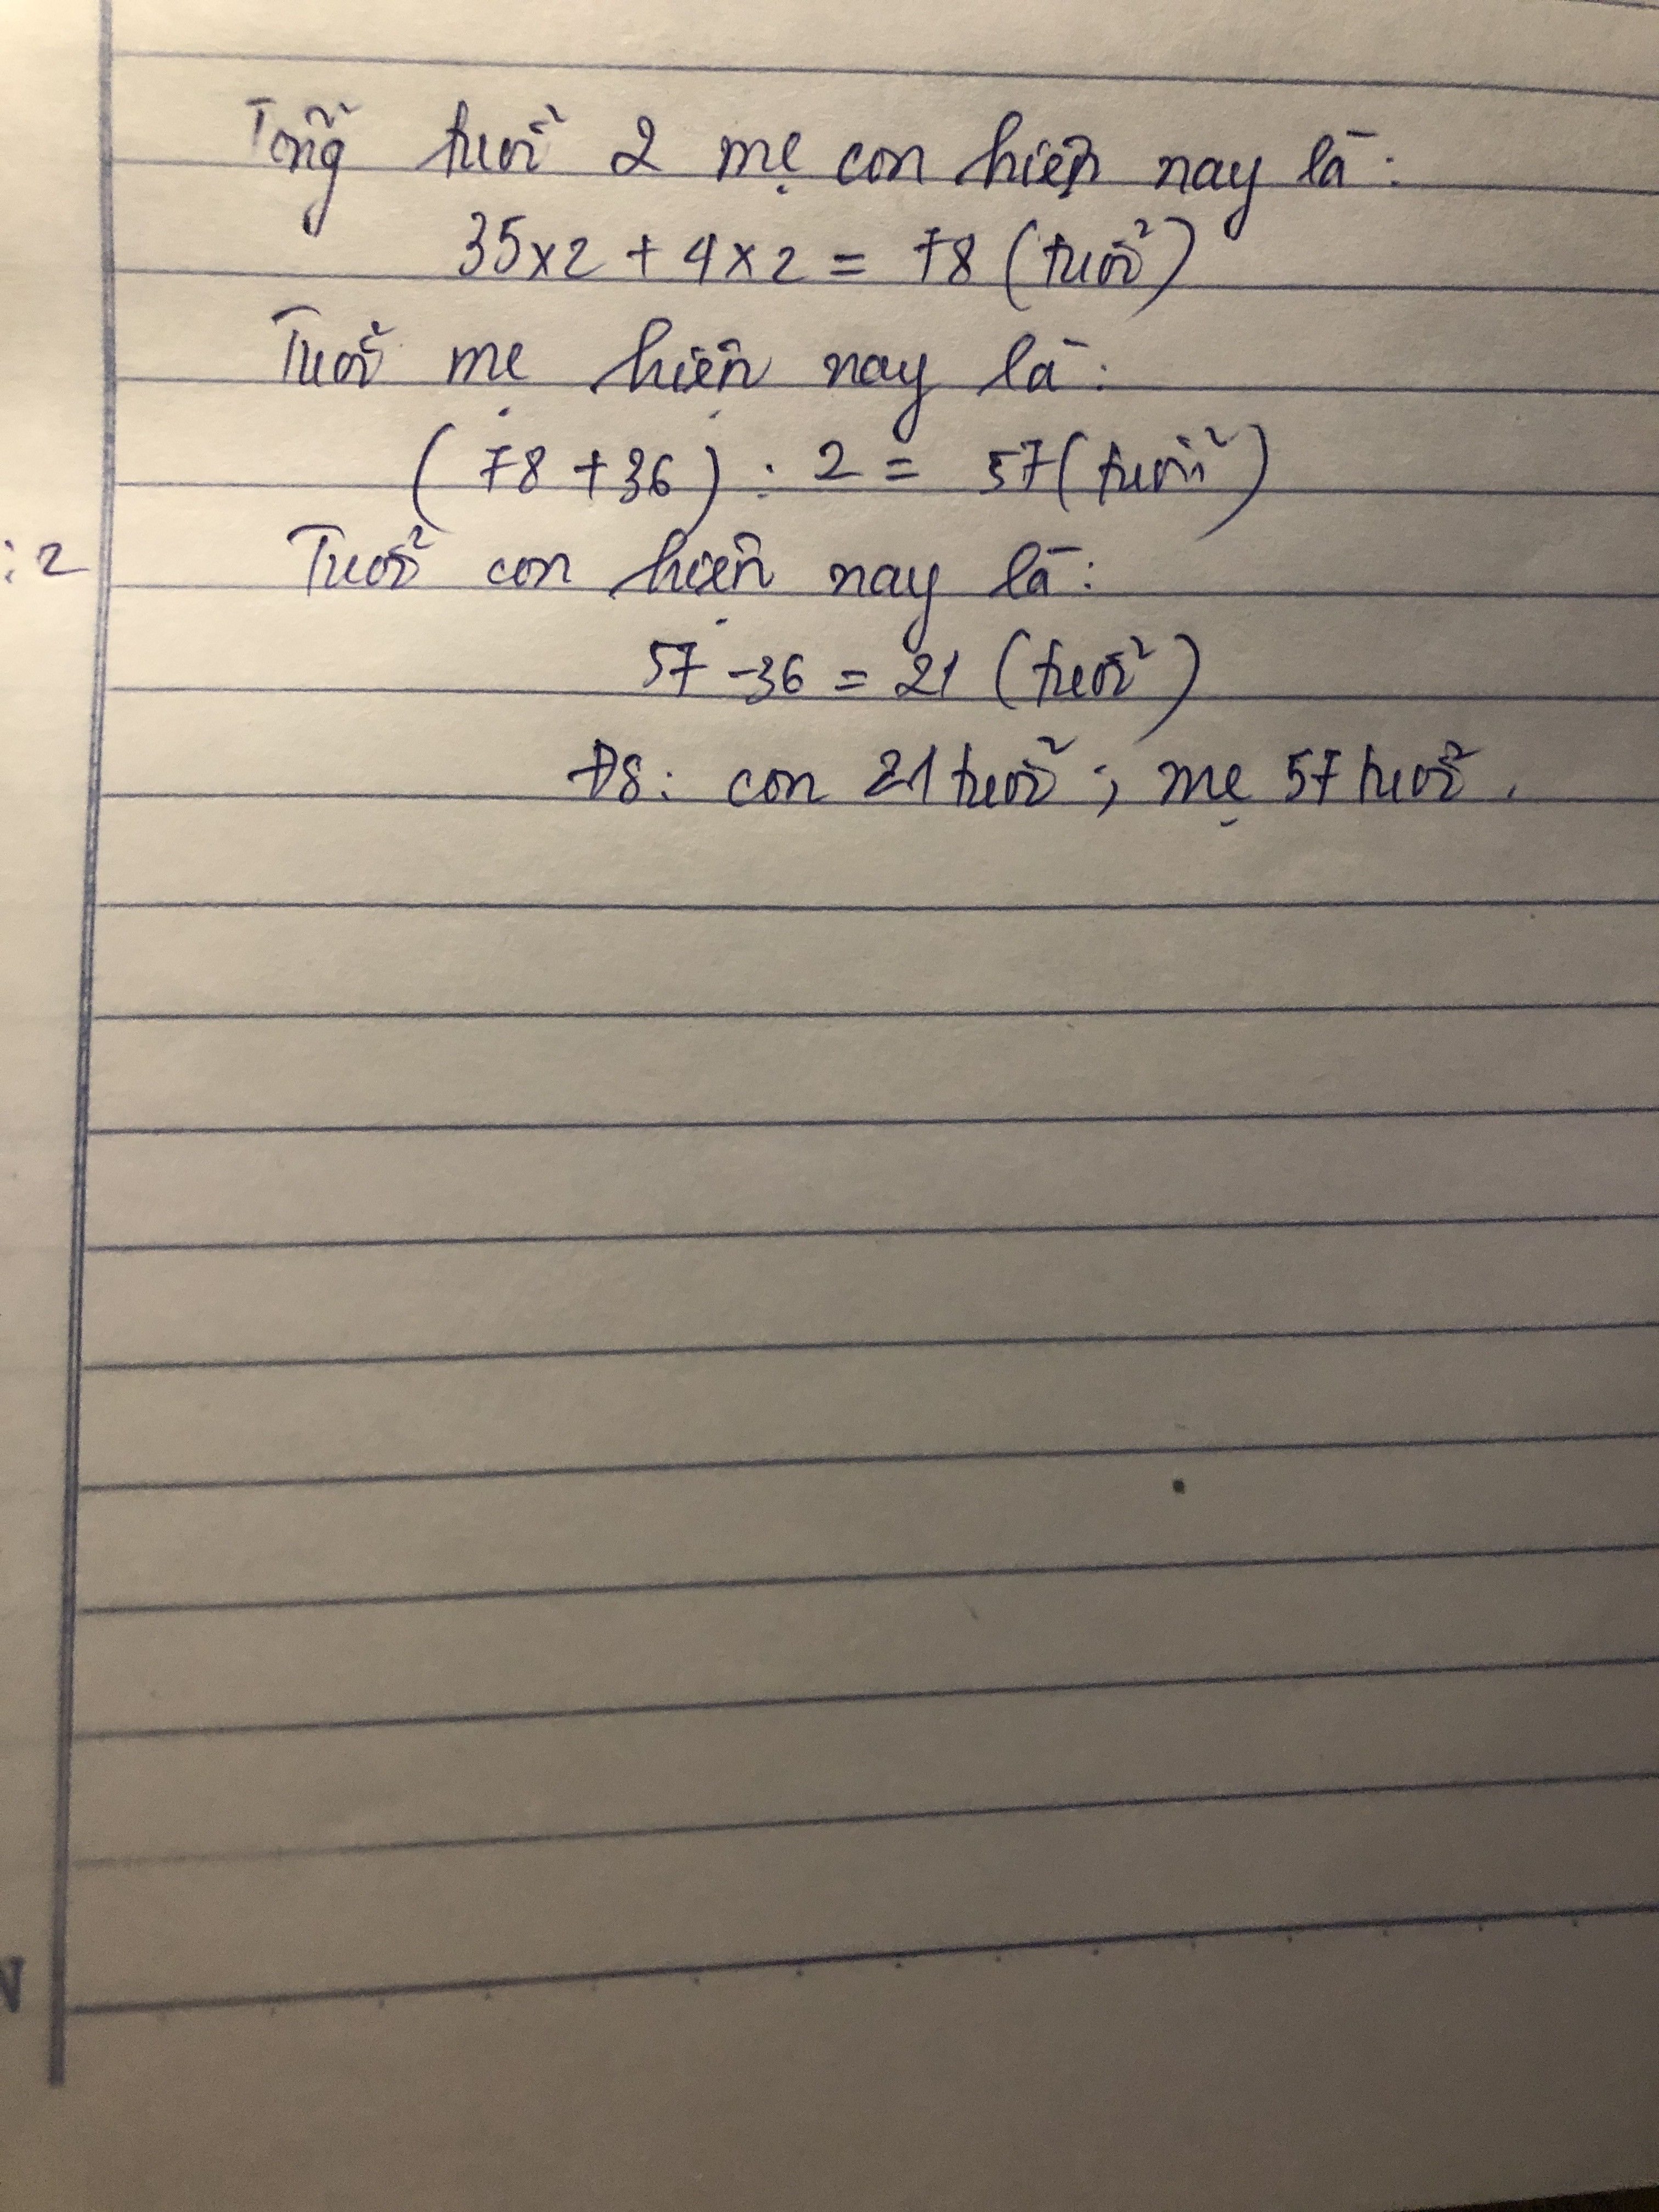 Tổng tuổi 2 mẹ con hiện nay là:
35x2 + 4x2 = 78 (tuổi)
Tuổi mẹ hiện nay là:
(78 +36) : 2 = 57 (tuổi)
:2
Tuổi con hiện nay là:
57 -36 = 21 (tuổi)
ĐS: con 21 tuổi; mẹ 57 tuổi.
N